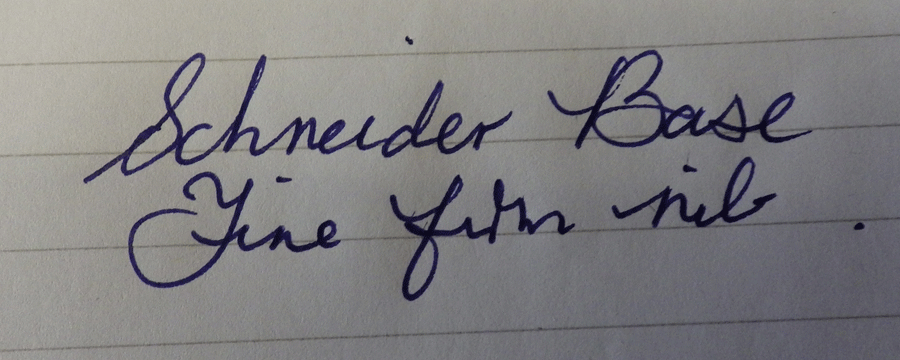 Schneider Base
Fine firm nib.